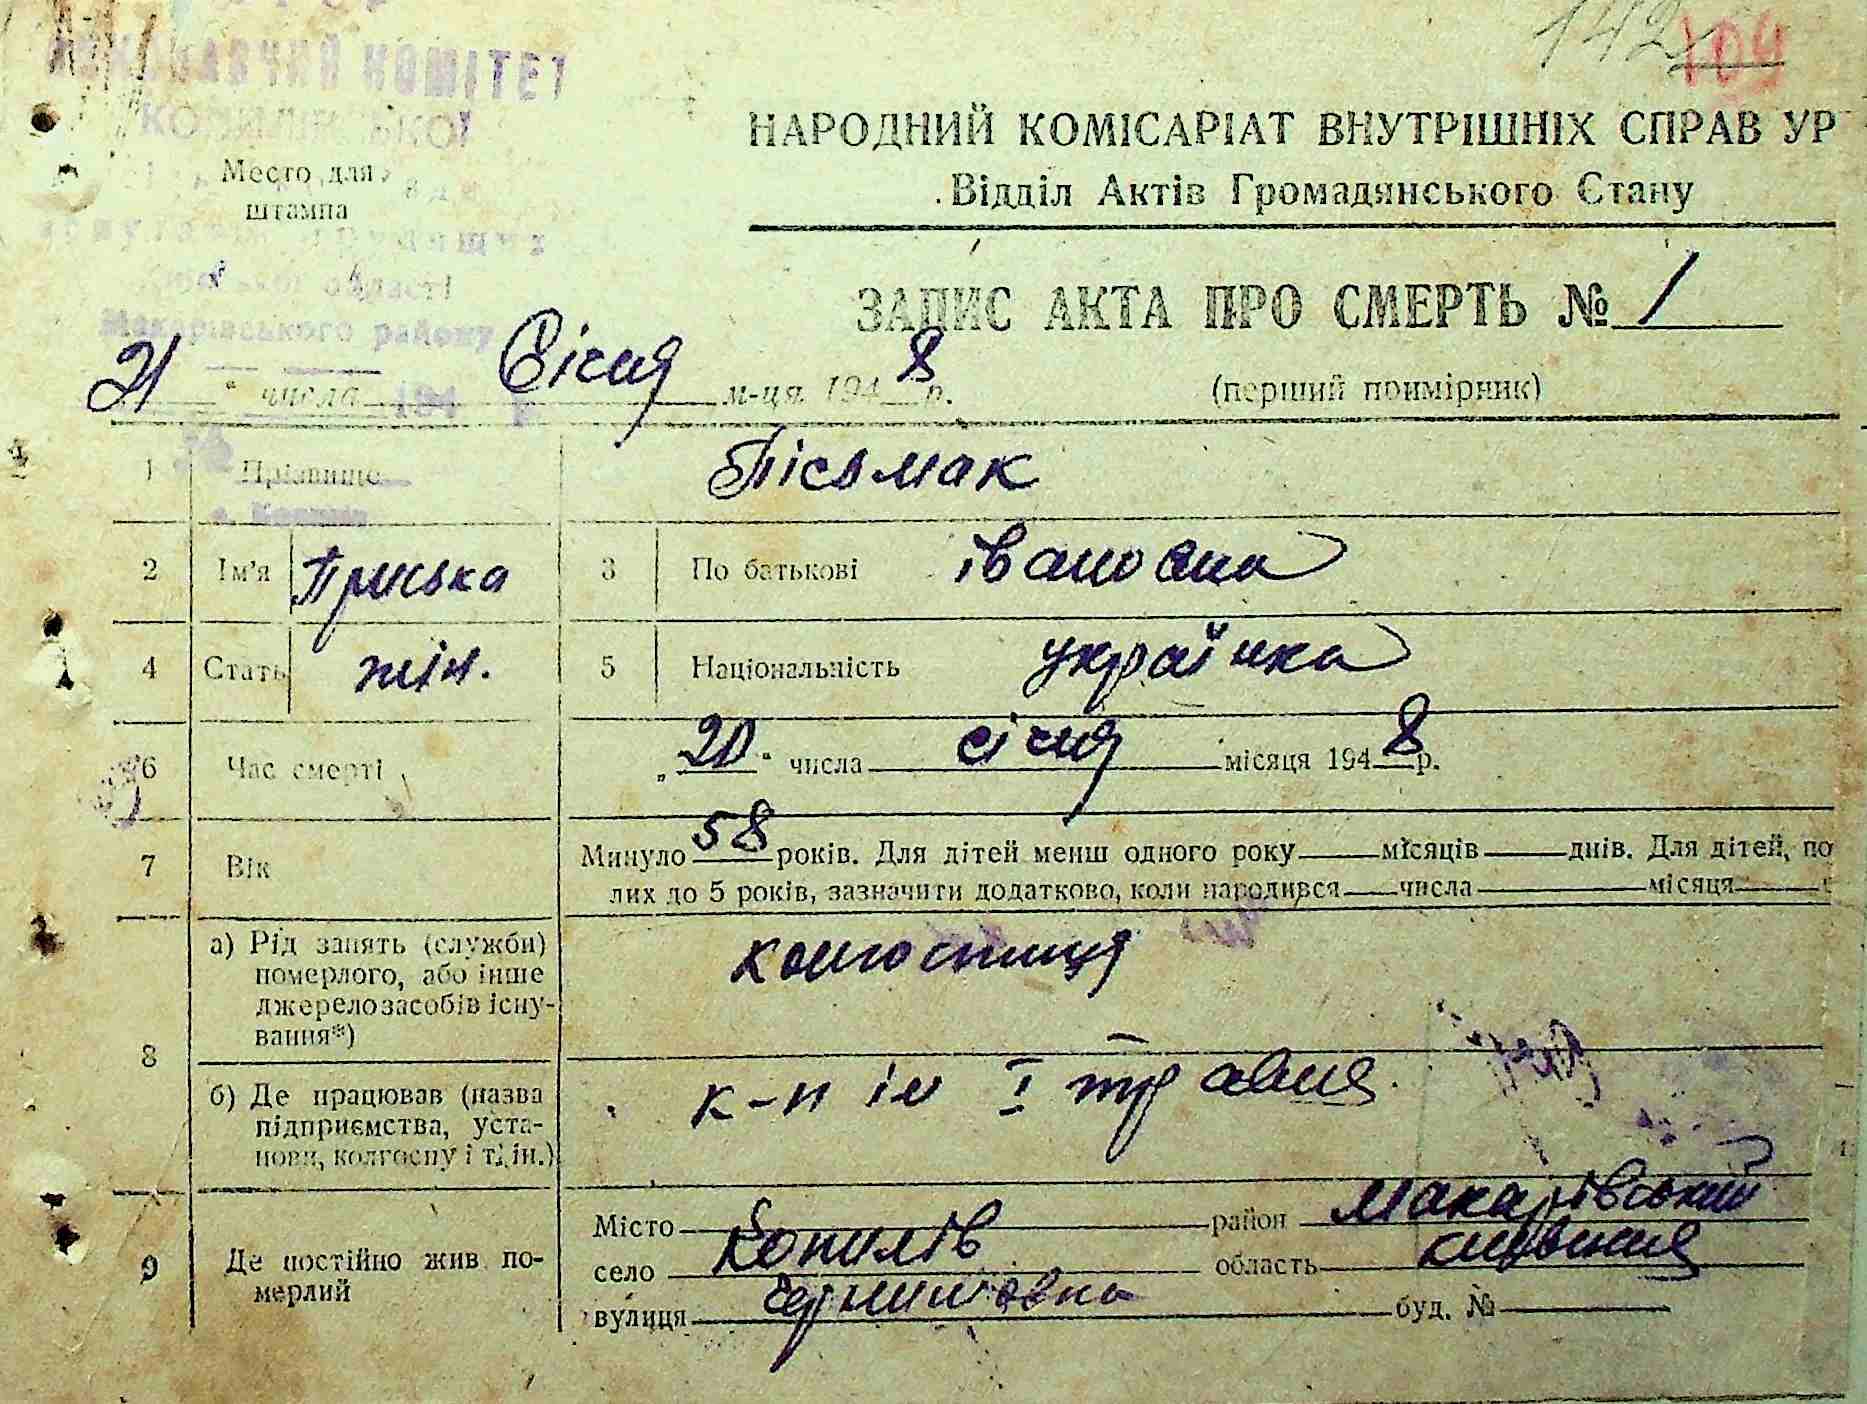 142 104
ВИКОНАВЧИЙ КОМІТЕТ
НАРОДНИЙ КОМІСАРІАТ ВНУТРІШНІХ СПРАВ УР
Место для
штампа
Відділ Актів Громадянського Стану
області
Макарівського району
ЗАПИС АКТА ПРО СМЕРТЬ № 1
21 " числа Січня м-ця 1948 р.
(перший примірник)
1 Прізвище Пісьмак
2 Ім'я Приська 3 По батькові івановна
4 Стать жін. 5 Національність українка
6 Час смерті „20" числа січня місяця 1948 р.
7 Вік Минуло 58 років. Для дітей менш одного року місяців днів. Для дітей, по
лих до 5 років, зазначити додатково, коли народився числа місяця
8 а) Рід занять (служби)
померлого, або інше
джерело засобів існу-
вання*)
колгоспниця
б) Де працював (назва
підприємства, уста-
нови, колгоспу і т. ін.)
к-п ім І травня
9 Де постійно жив по-
мерлий
Місто район Макарівський
село Копилів область
вулиця буд. №